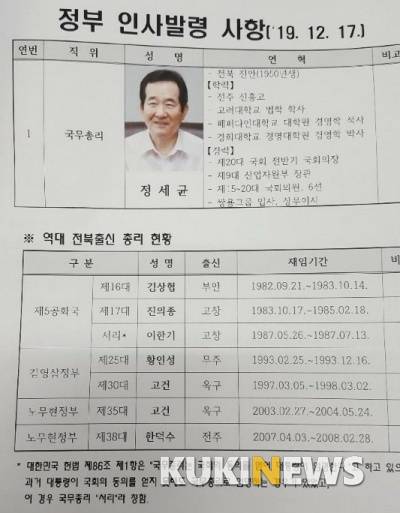 정부 인사발령 사항('19. 12. 17.)
연번 직 위 성 명 연 혁 비고
- 전북 진안(1950년생)
【학력】
- 전주 신흥고
고려대학교 법학 학사
- 페퍼다인대학교 대학원 경영학 석사
- 경희대학교 경영대학원 경영학 박사
【경력】
- 제20대 국회 전반기 국회의장
- 제9대 산업자원부 장관
- 제15~20대 국회의원, 6선
- 쌍용그룹 입사, 상무이사
1 국무총리 정 세 균
※ 역대 전북출신 총리 현황
구 분 성 명 출신 재임기간 비
제5공화국 제16대 김상협 부안 1982.09.21.~1983.10.14.
제17대 진의종 고창 1983.10.17.~1985.02.18.
서리* 이한기 고창 1987.05.26.~1987.07.13.
김영삼정부 제25대 황인성 무주 1993.02.25.~1993.12.16.
제30대 고건 옥구 1997.03.05.~1998.03.02.
노무현정부 제35대 고건 옥구 2003.02.27.~2004.05.24.
노무현정부 제38대 한덕수 전주 2007.04.03.~2008.02.28.
* 대한민국 헌법 제86조 제1항은 "국무 하고 있으
과거 대통령이 국회의 동의를 얻지
이 경우 국무총리 '서리'라 칭함.
KUKINEWS